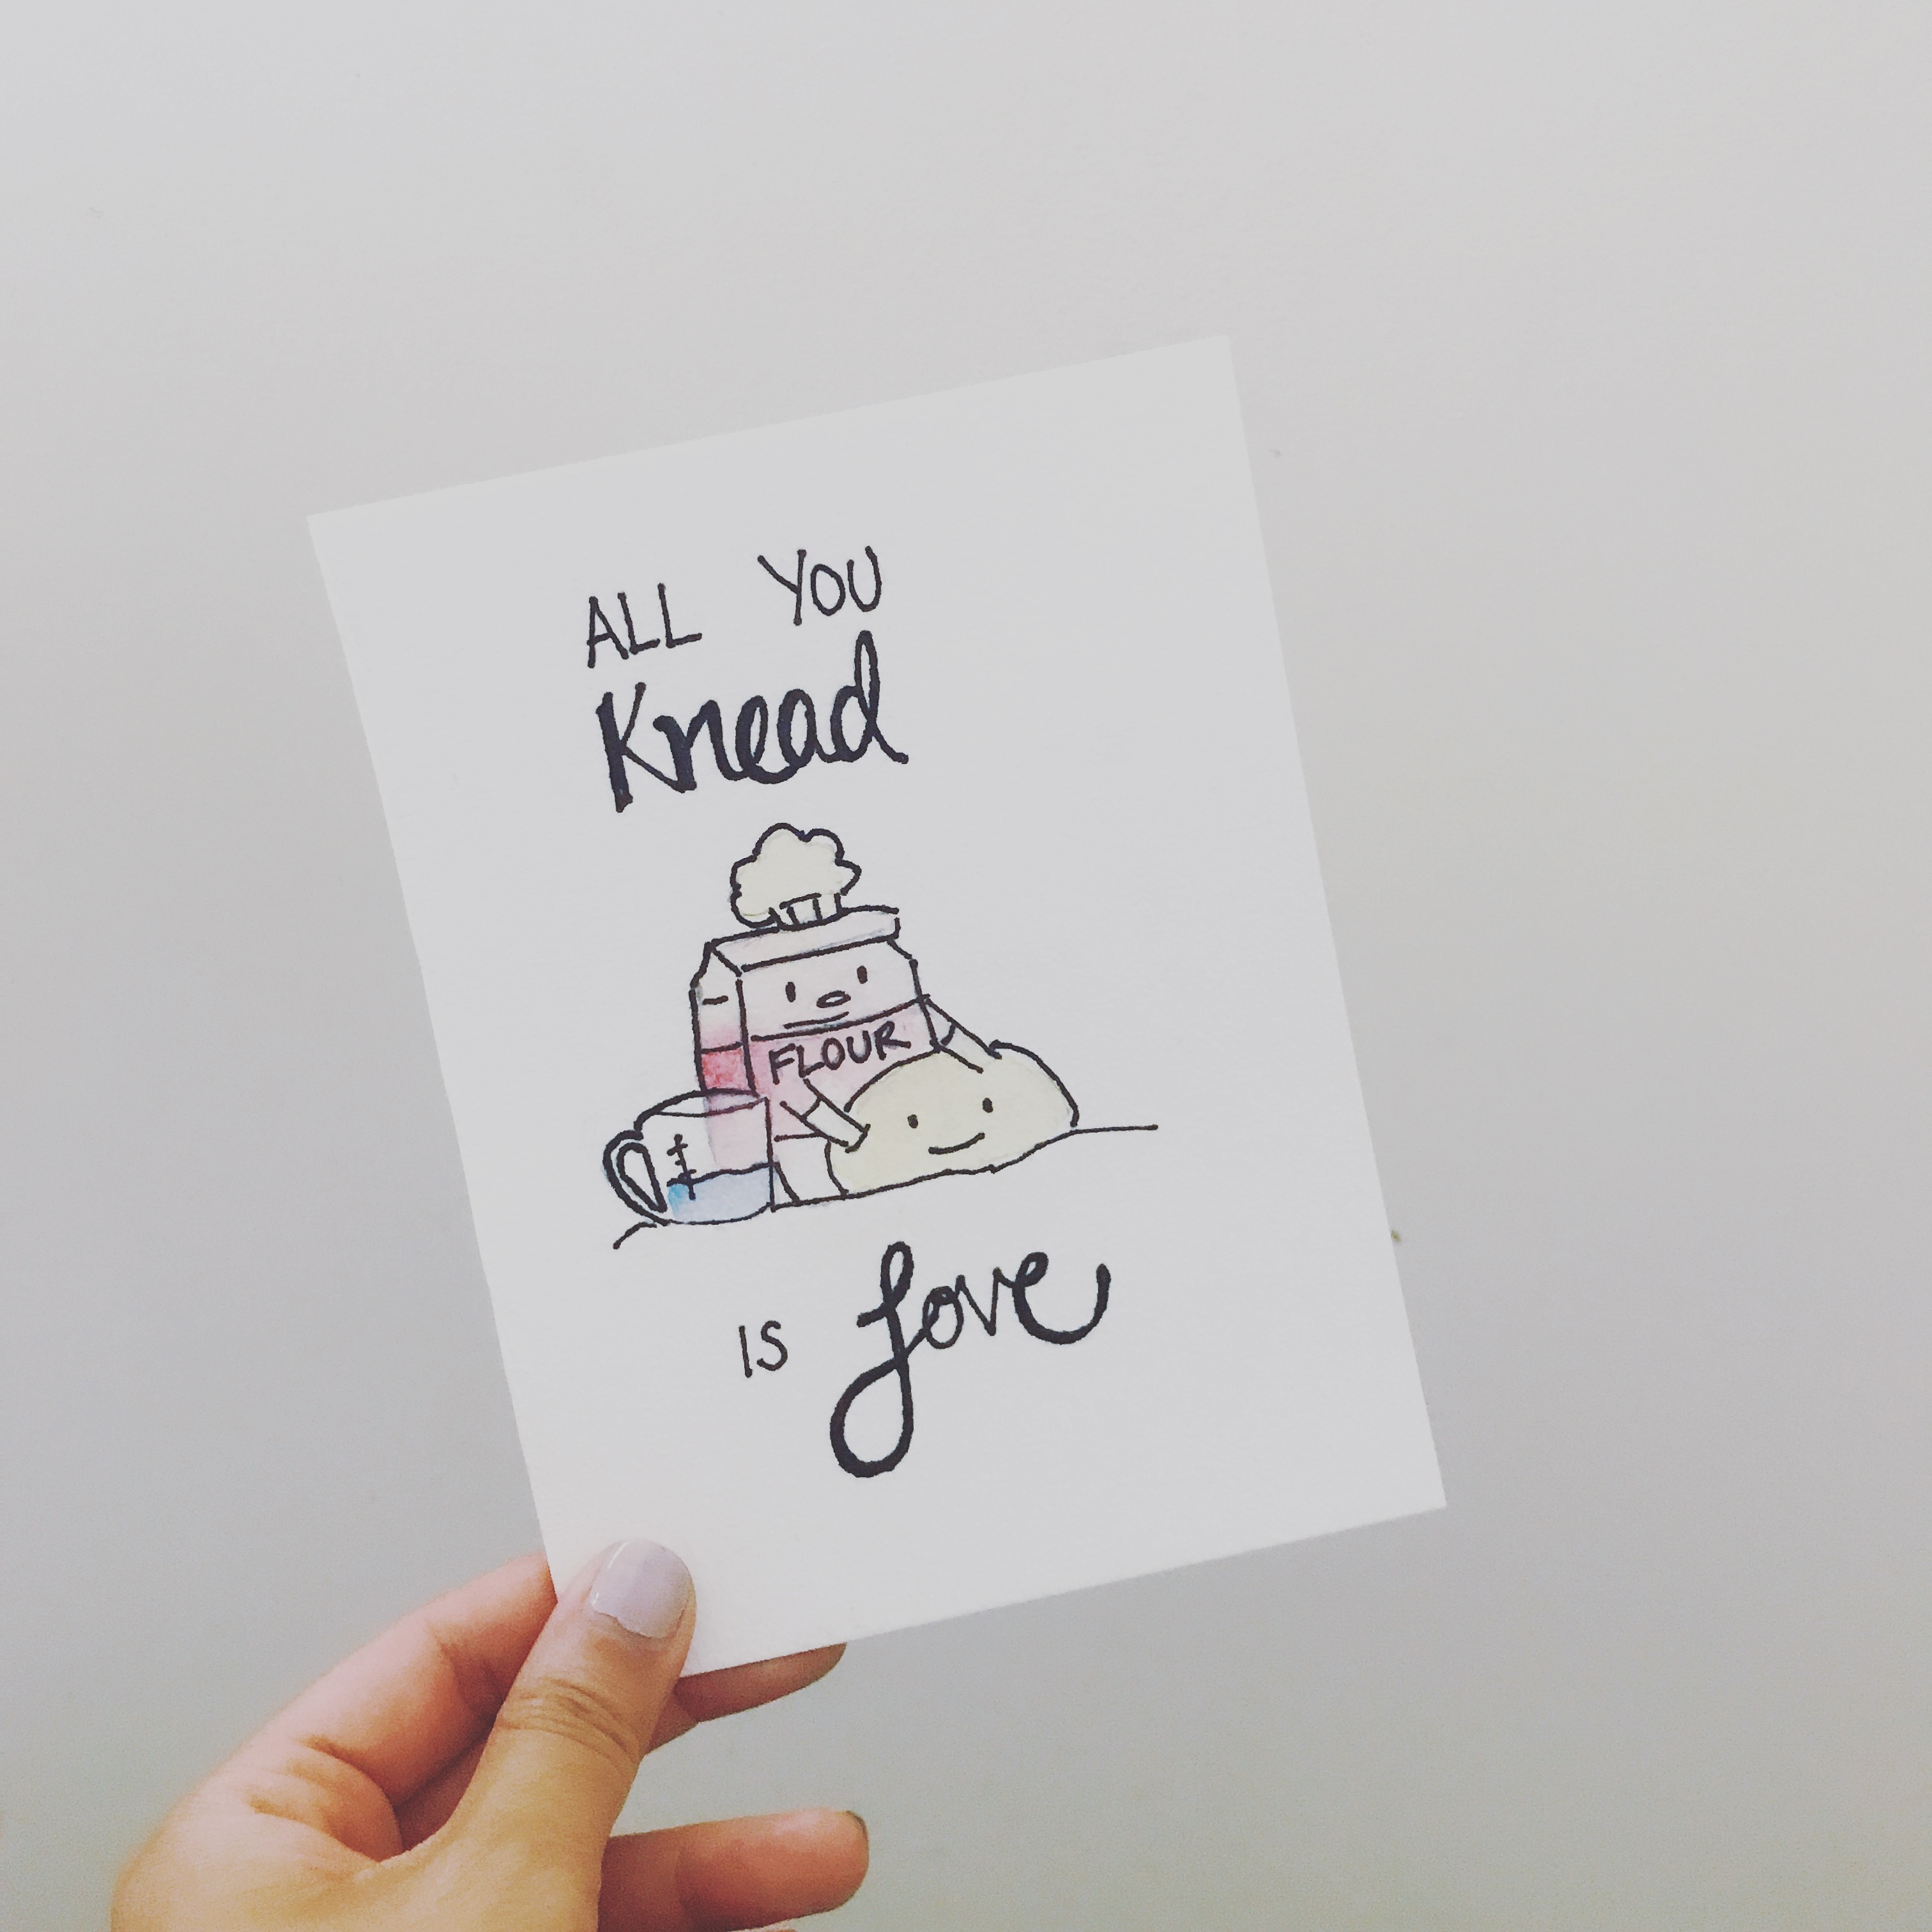 ALL YOU
Knead
FLOUR
IS Love